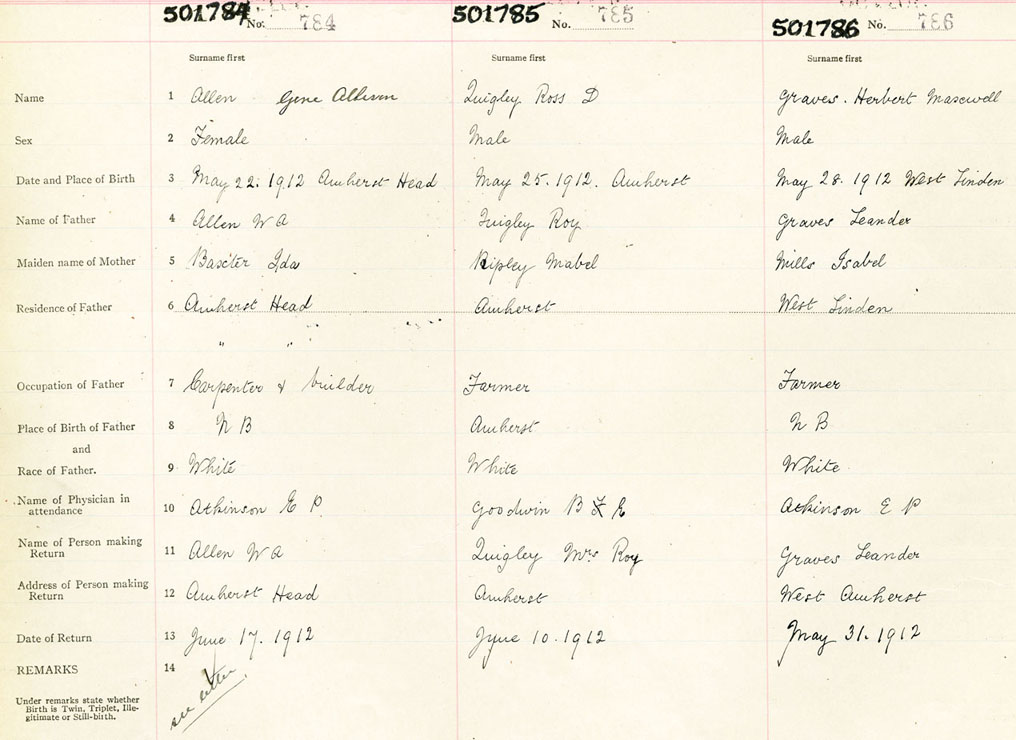 501784 No. 784 501785 No. 785 501786 No. 786
Surname first Surname first Surname first
Name 1 Allen Gene Allison Quigley Ross D Graves. Herbert Maxwell
Sex 2 Female Male Male
Date and Place of Birth 3 May 22. 1912 Amherst Head May 25. 1912. Amherst May 28. 1912 West Linden
Name of Father 4 Allen W A Quigley Roy Graves Leander
Maiden name of Mother 5 Baxter Ida Ripley Mabel Mills Isabel
Residence of Father 6 Amherst Head Amherst West Linden
" "
Occupation of Father 7 Carpenter & builder Farmer Farmer
Place of Birth of Father 8 N B Amherst N B
and
Race of Father. 9 White White White
Name of Physician in
attendance 10 Atkinson E P Goodwin B E Atkinson E P
Name of Person making
Return 11 Allen W A Quigley Mrs Roy Graves Leander
Address of Person making
Return 12 Amherst Head Amherst West Amherst
Date of Return 13 June 17. 1912 June 10. 1912 May 31. 1912
REMARKS 14
see
Under remarks state whether
Birth is Twin, Triplet, Ille-
gitimate or Still-birth.